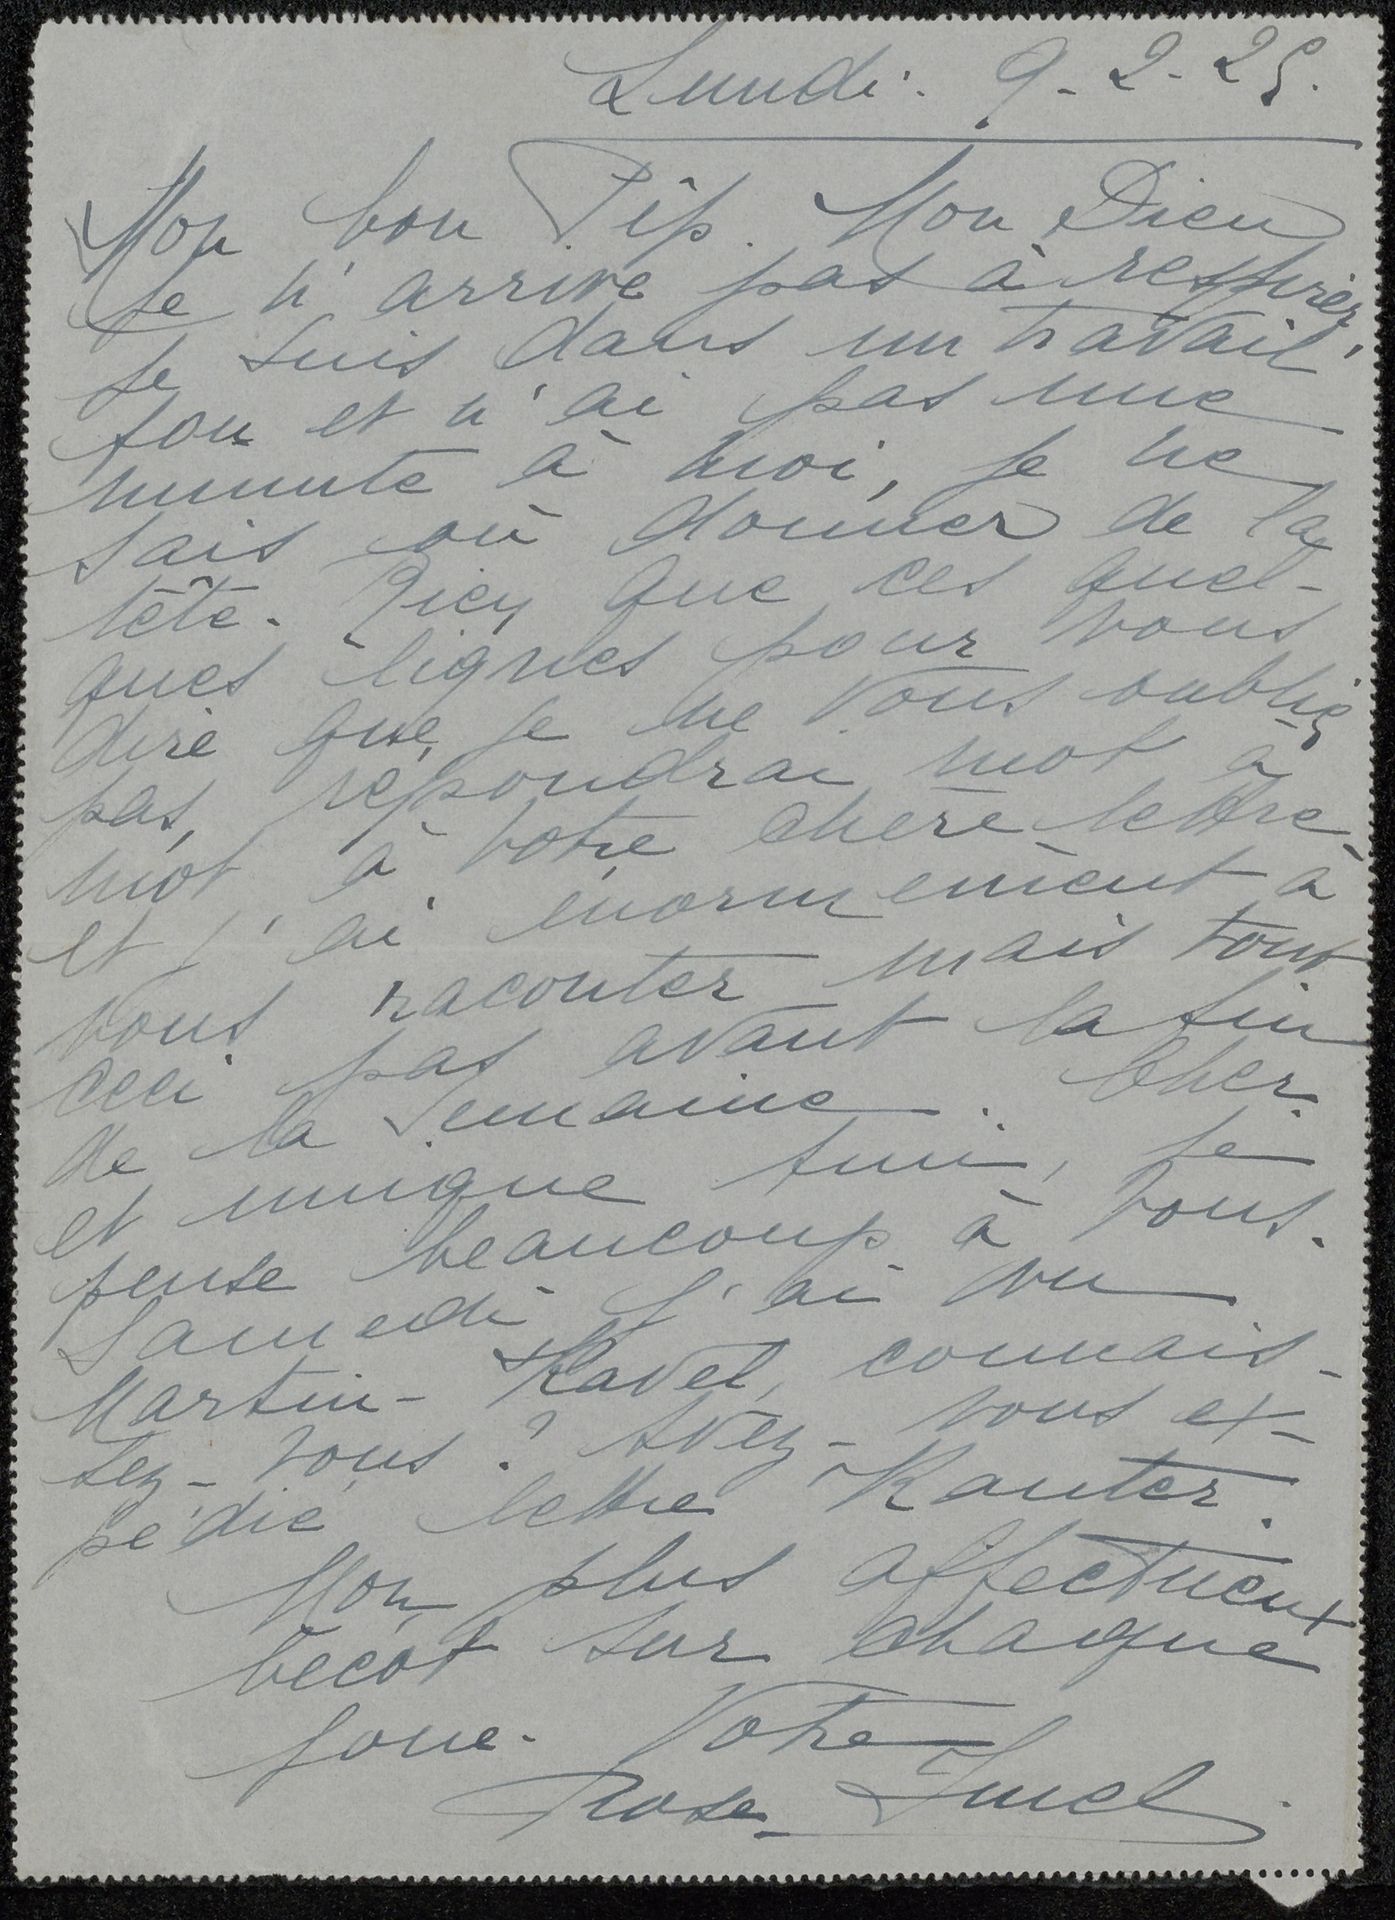 Lundi. 9-2-25.
Mon bon Pip. Mon Dieu
je n'arrive pas à respirer,
je suis dans un travail
fou et n'ai pas une
minute à moi, je ne
sais où donner de la
tête. Rien que ces quel-
ques lignes pour vous
dire que je ne vous oublie
pas, répondrai mot à
mot à votre chère lettre
et j'ai énormément à
vous raconter mais tout
ceci pas avant la fin
de la semaine. Cher
et unique Ami, je
pense beaucoup à vous.
Samedi j'ai vu
Martin-Kavel, connais-
sez-vous? Avez-vous ex-
pédié lettre Kanter.
Mon plus affectueux
bécot sur chaque
joue. Votre
Rose